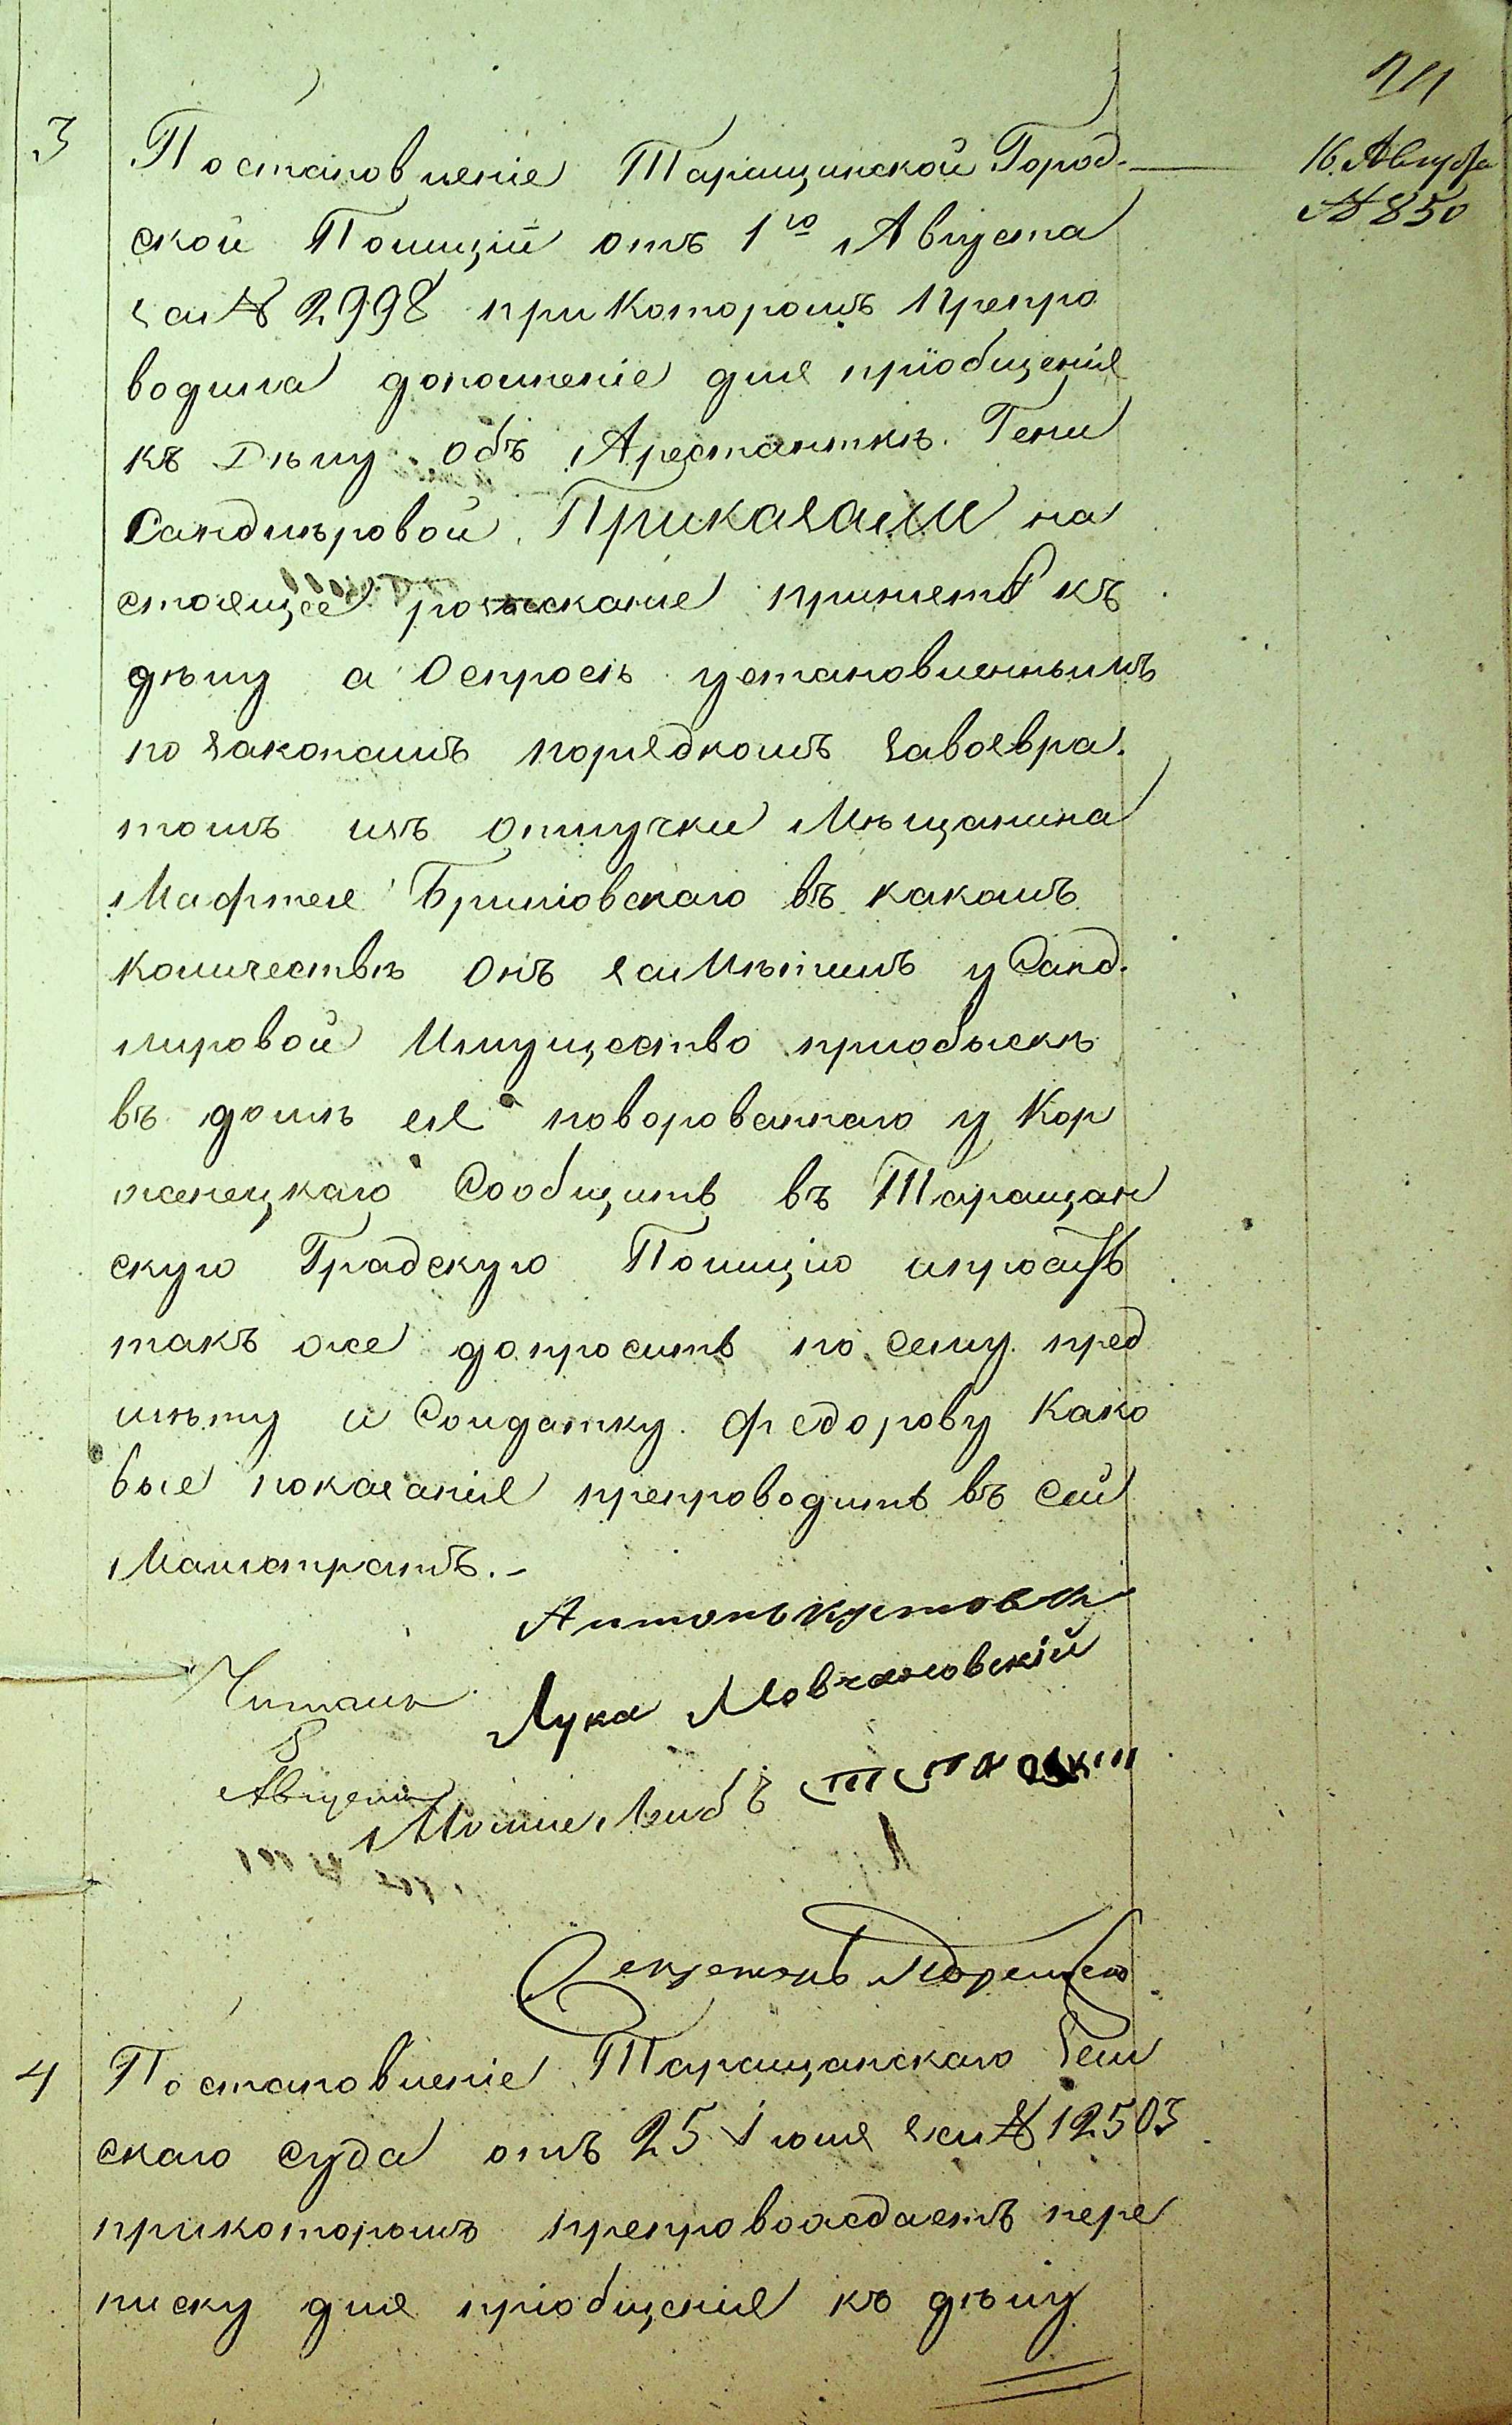 3
Постановленіе Таращинской Город-
ской Полиціи отъ 1го Августа
за № 2998 при которомъ препро
водила дополненіе для пріобщенія
къ Дѣлу объ Арестанткѣ Гени
Сандлѣровой. Приказали на
стоящее розысканіе пріинеть къ
дѣлу а Оспросѣ установленнымъ
по законамъ порядкомъ завозвра.
томъ изъ отлучки Мѣщанина
Мафтея Бриліовскаго въ какомъ
количествѣ Онъ замѣтилъ у Санд.
лировой Имущество приобыскѣ
въ домѣ ея поворованнаго у Кор
женецкаго Сообщить въ Таращан
скую Градскую Полицію ипросить
такъ же допросить по сему пред
мѣту и Солдатку Федорову Како
вые показанія препроводить въ Сей
Магистратъ.-
Антонъ
Лука Мовчановскій
Читалъ
Августа
Мошие Лейбъ
Секретарь
16 Августа
№ 850
4
Постановленіе Таращанскаго Зем
скаго Суда отъ 25 Іюля за № 12503
прикоторомъ препровождаетъ пере
писку для пріобщенія къ дѣлу